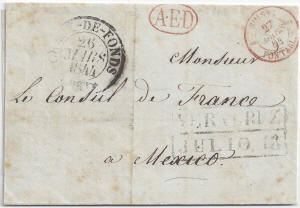 -DE-FONDS
26
MARS
1844
A.E.D.
SUISSE
27
PONTARL
Monsieur
Le Consul de France
VERACRUZ
JULIO.
à Mexico.